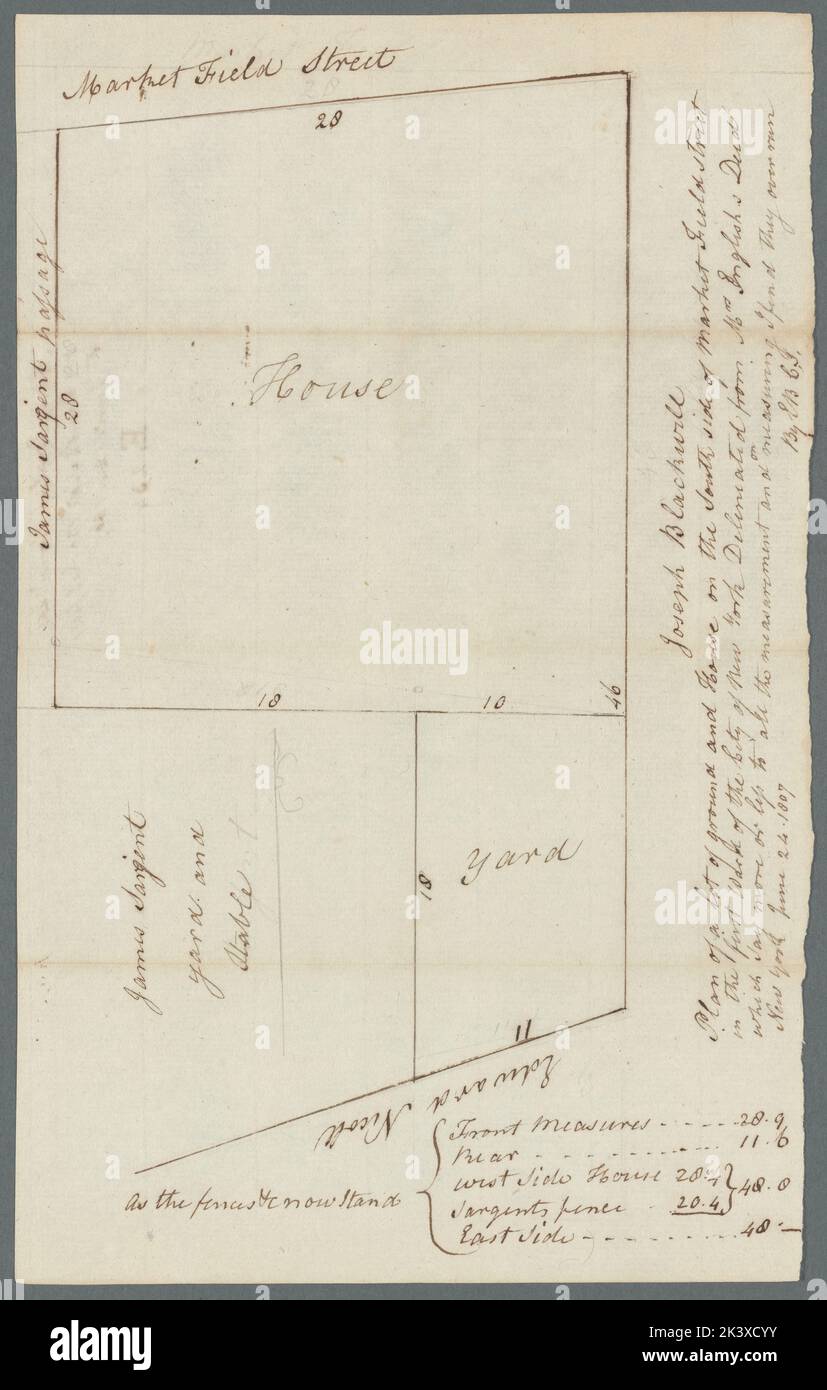 Market Field Street
28
James Sargent passage
28
House
18
10
46
James Sargent
yard and
Stable
18
Yard
11
Edward Nicoll
Joseph Blackwell
Plan of a lot of ground and House on the South side of Market Field street
in the first Ward of the City of New York Deliniated from Mrs English's Deed
which Say more or less to all the measurement and on measuring I find they over run
New York June 24. 1807
By E B C.S.
As the fences &c now Stand
Front Measures - - - - - 28.9
Rear - - - - - - - - - 11.6
West Side House 28.4
Sargents fence - 20.4
48.8
East Side - - - - - - - - - 48 -
alamy
Image ID: 2K3XCYY
www.alamy.com